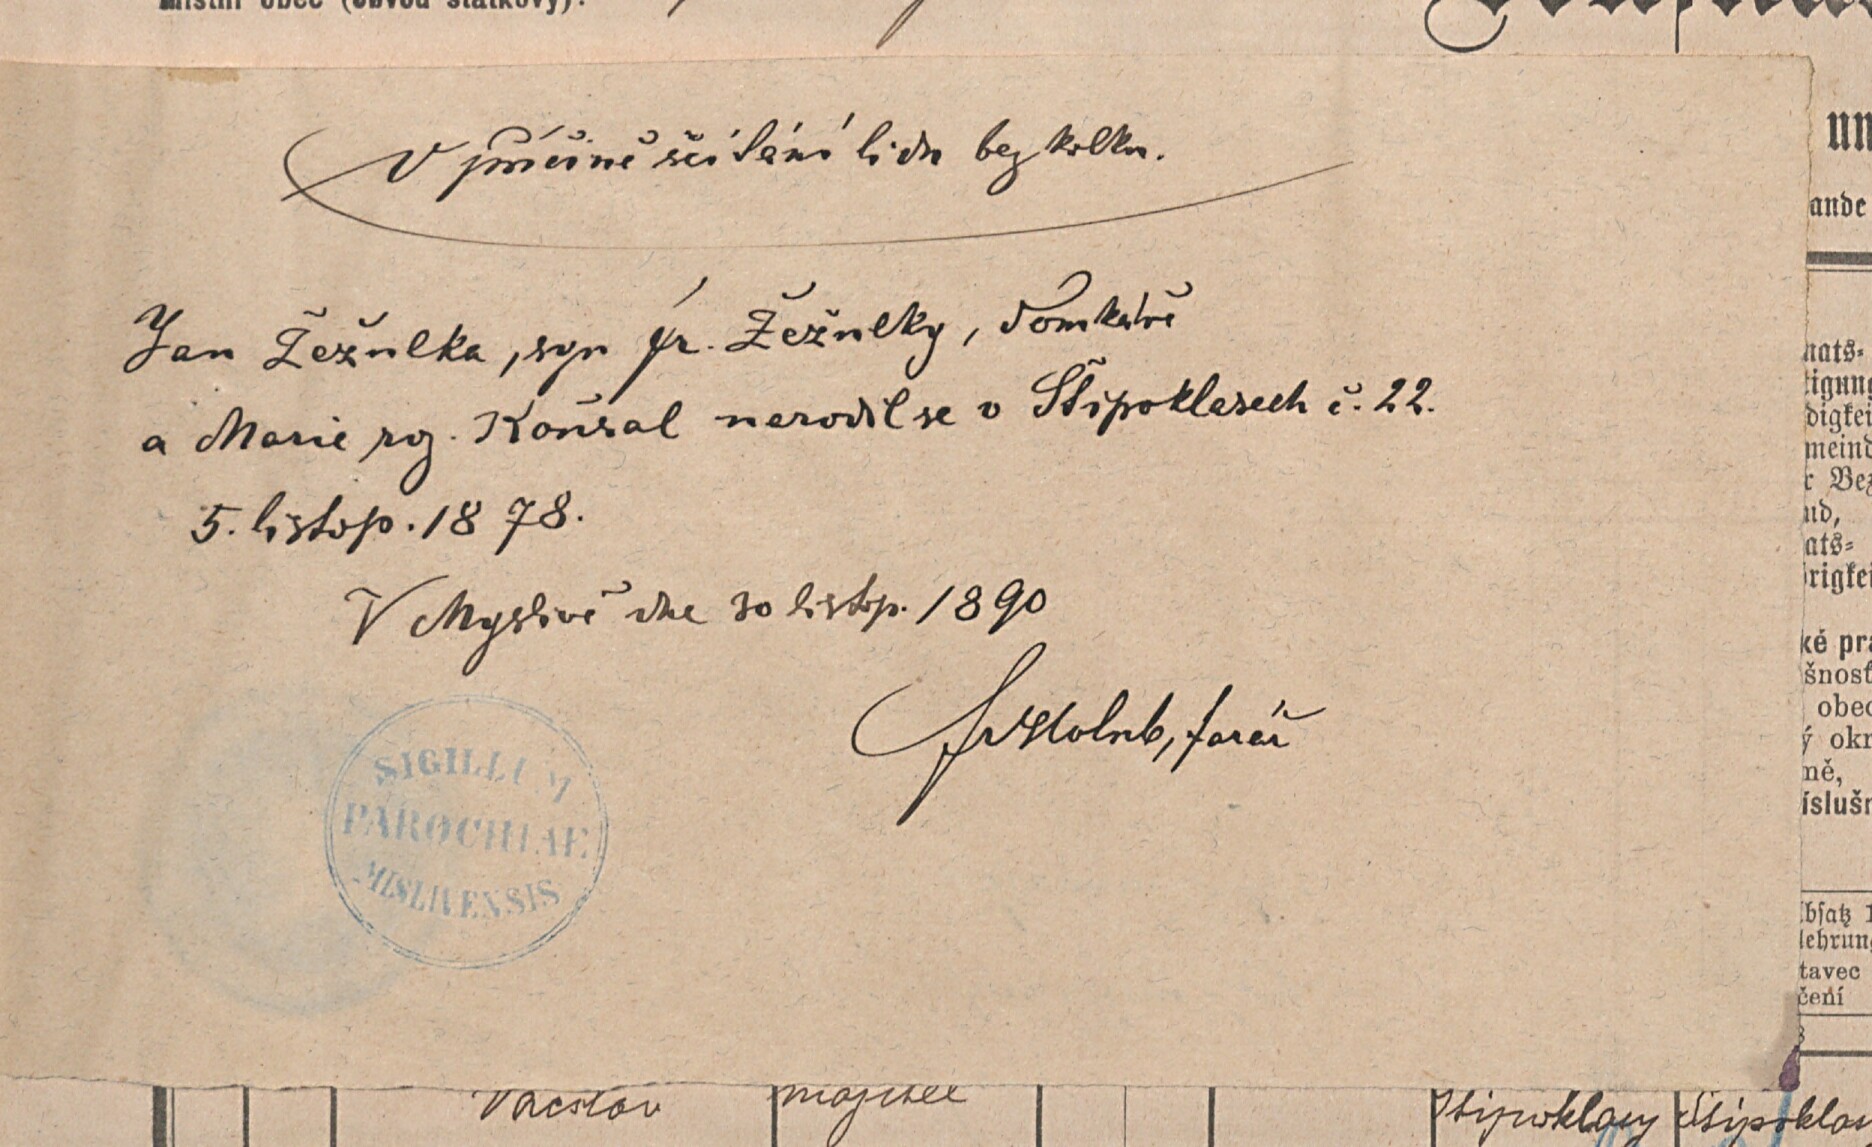 místní obec (obvod statkový):
V příčině sčítání lidu bez kolku.
Jan Žežulka, syn Fr. Žežulky, domkáře
a Marie roz. Koňsal narodil se v Štipoklasech č. 22.
5. listop. 1878.
V Myslivě dne 30 listop. 1890
Holub, farář
SIGILLUM
PAROCHIAE
MISLIVENSIS
un
ande
nats-
tigung
digkei
meind
r Bez
nd,
ats-
rigkei
ké pra
šnosť
obec
ý okr
mě,
íslušn
bsatz 1
lehrung
tavec
čení
Vácslav majitel Štipoklasy Štipoklas